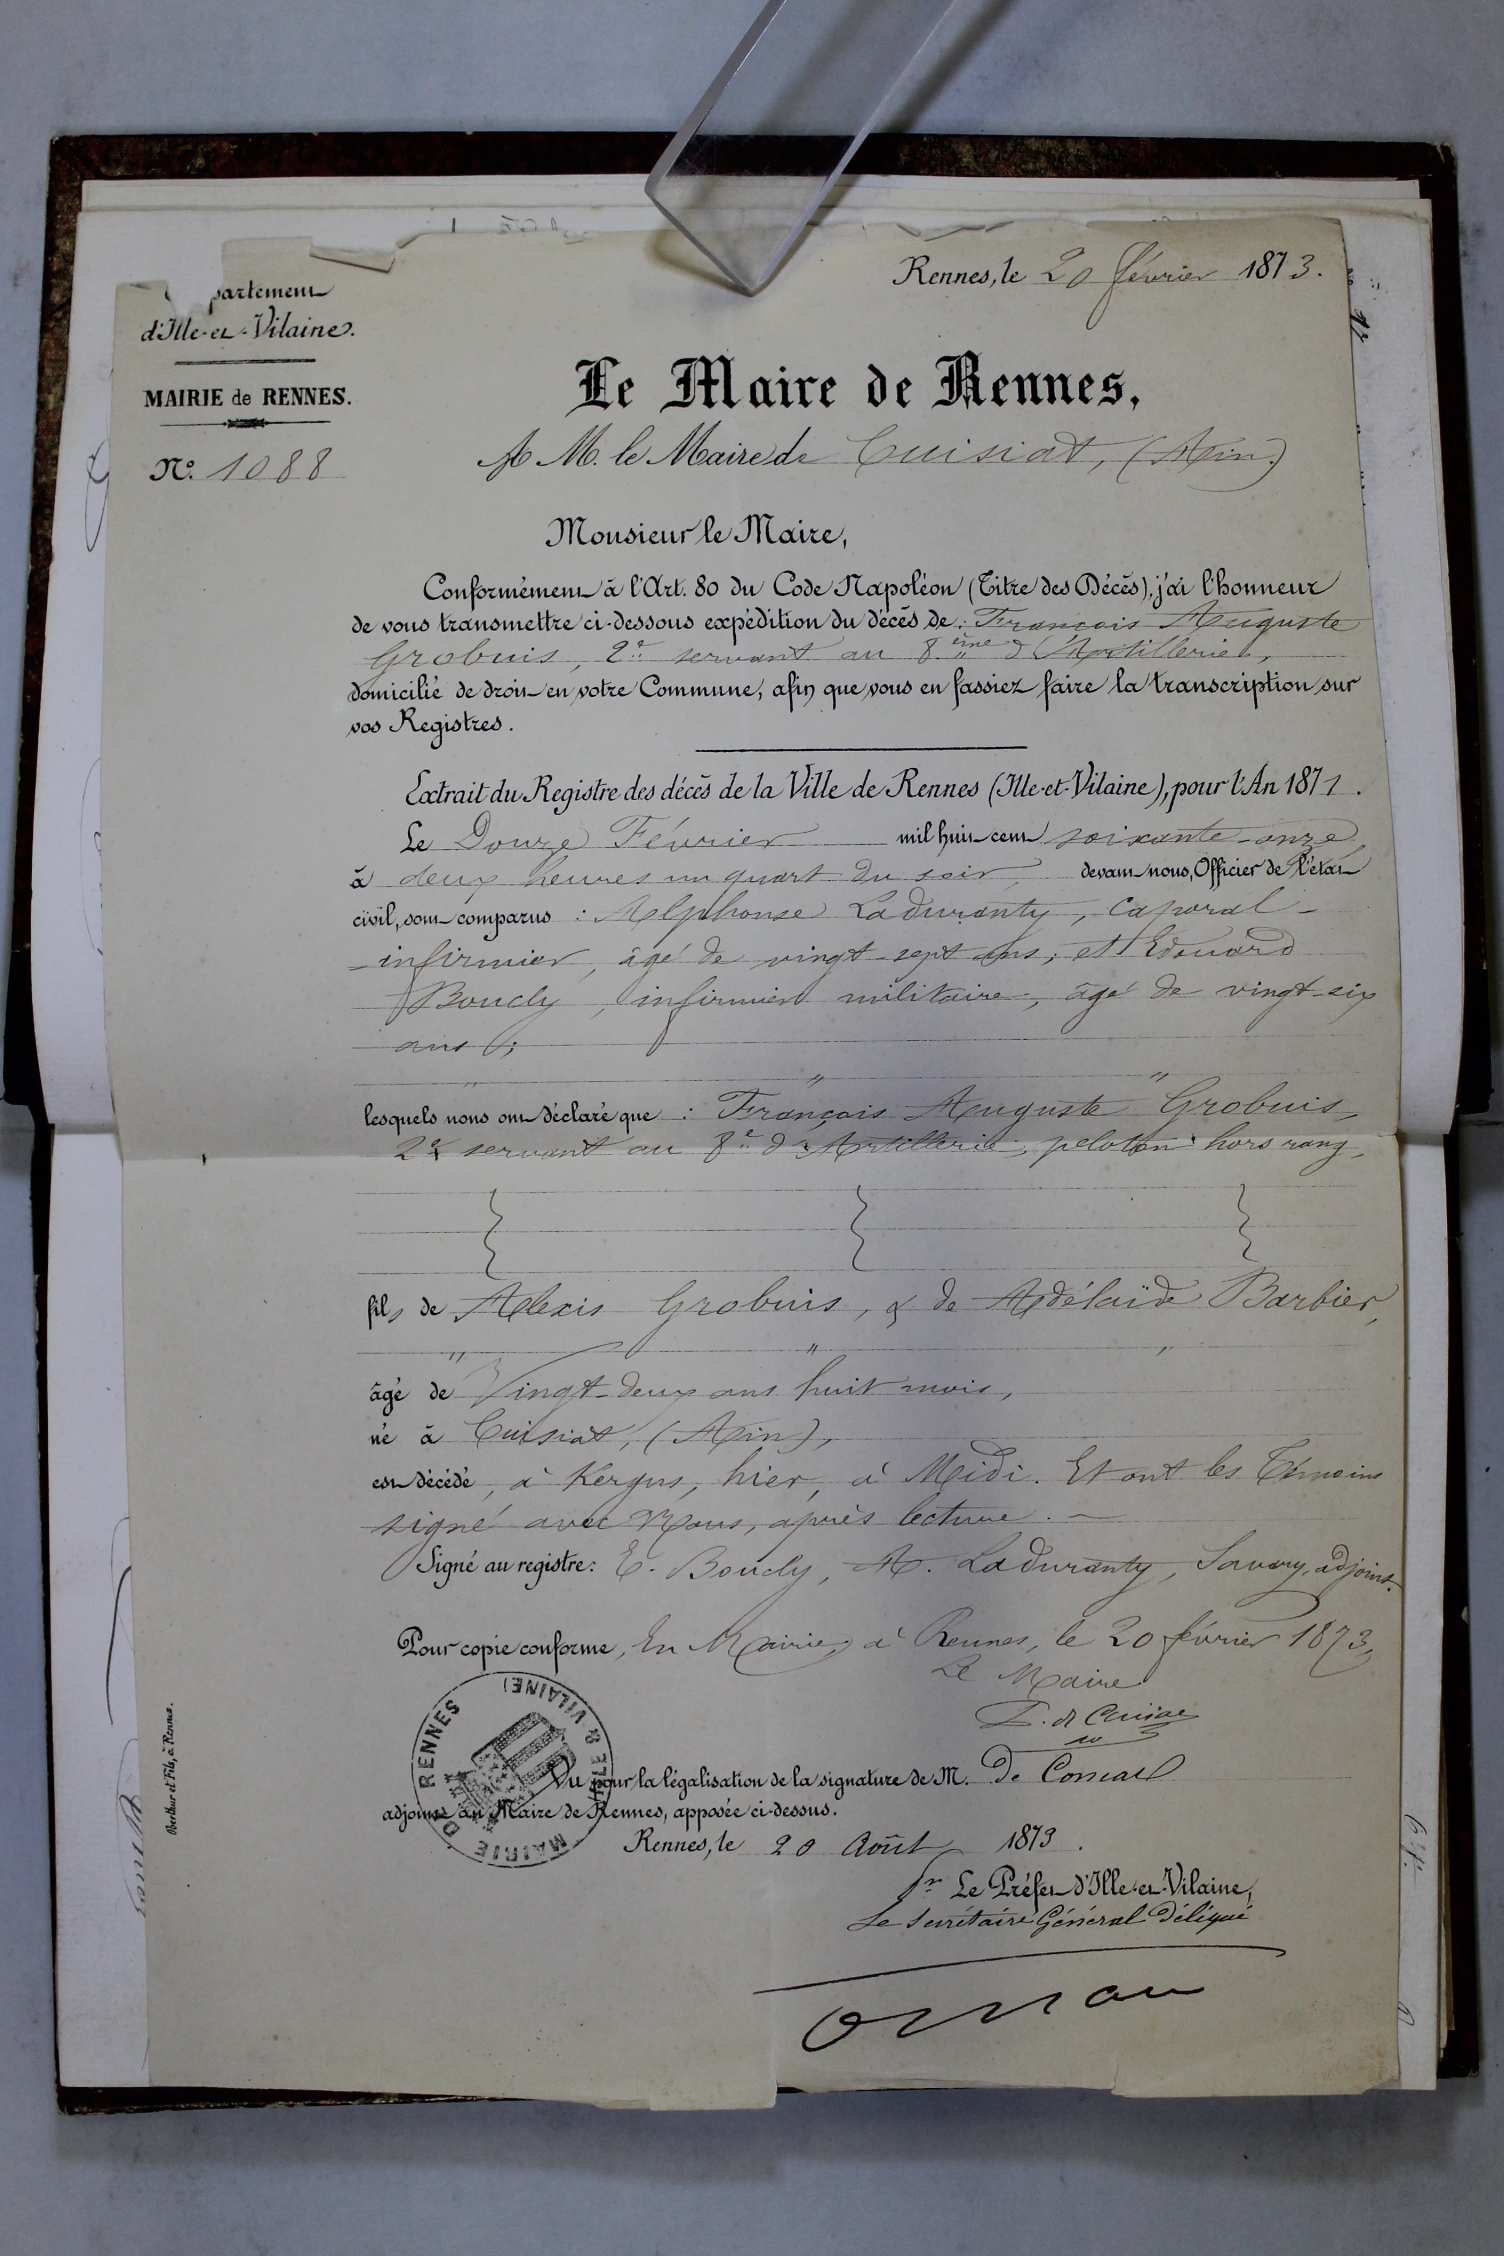 Rennes, le 20 février 1873.
partement
d'Ille-et-Vilaine.
MAIRIE de RENNES.
N.º 1088
Le Maire de Rennes,
A M. le Maire de Cuisiat, (Ain)
Monsieur le Maire,
Conformément à l'Art. 80 du Code Napoléon (Titre des Décès), j'ai l'honneur
de vous transmettre ci-dessous expédition du décès de : François Auguste
Grobuis, 2e servant au 8ème d'Artillerie,
domicilié de droit en votre Commune, afin que vous en fassiez faire la transcription sur
vos Registres.
Extrait du Registre des décès de la Ville de Rennes (Ille-et-Vilaine), pour l'An 1871.
Le Douze Février mil huit-cent soixante-onze
à deux heures un quart du soir, devant nous, Officier de l'état
civil, sont comparus : Alphonse Laduranty, caporal-
infirmier, âgé de vingt-sept ans ; et Edouard
Boucly, infirmier militaire, âgé de vingt-six
ans ;
lesquels nous ont déclaré que : François Auguste Grobuis,
2e servant au 8e d'Artillerie, peloton hors rang,
fils de Alexis Grobuis, & de Adélaïde Barbier,
âgé de Vingt-deux ans huit mois,
né à Cuisiat, (Ain),
est décédé, à Kergus, hier, à Midi. Et ont les Témoins
signé avec Nous, après lecture.
Signé au registre : E. Boucly, A. Laduranty, Savary, adjoint.
Pour copie conforme, En Mairie, à Rennes, le 20 février 1873,
Le Maire
MAIRIE DE RENNES (ILLE & VILAINE)
Vu pour la légalisation de la signature de M. De
adjoint au Maire de Rennes, apposée ci-dessus.
Rennes, le 20 Août 1873.
Pr Le Préfet d'Ille-et-Vilaine,
Le Secrétaire Général Délégué
Berthur et Fils, à Rennes.